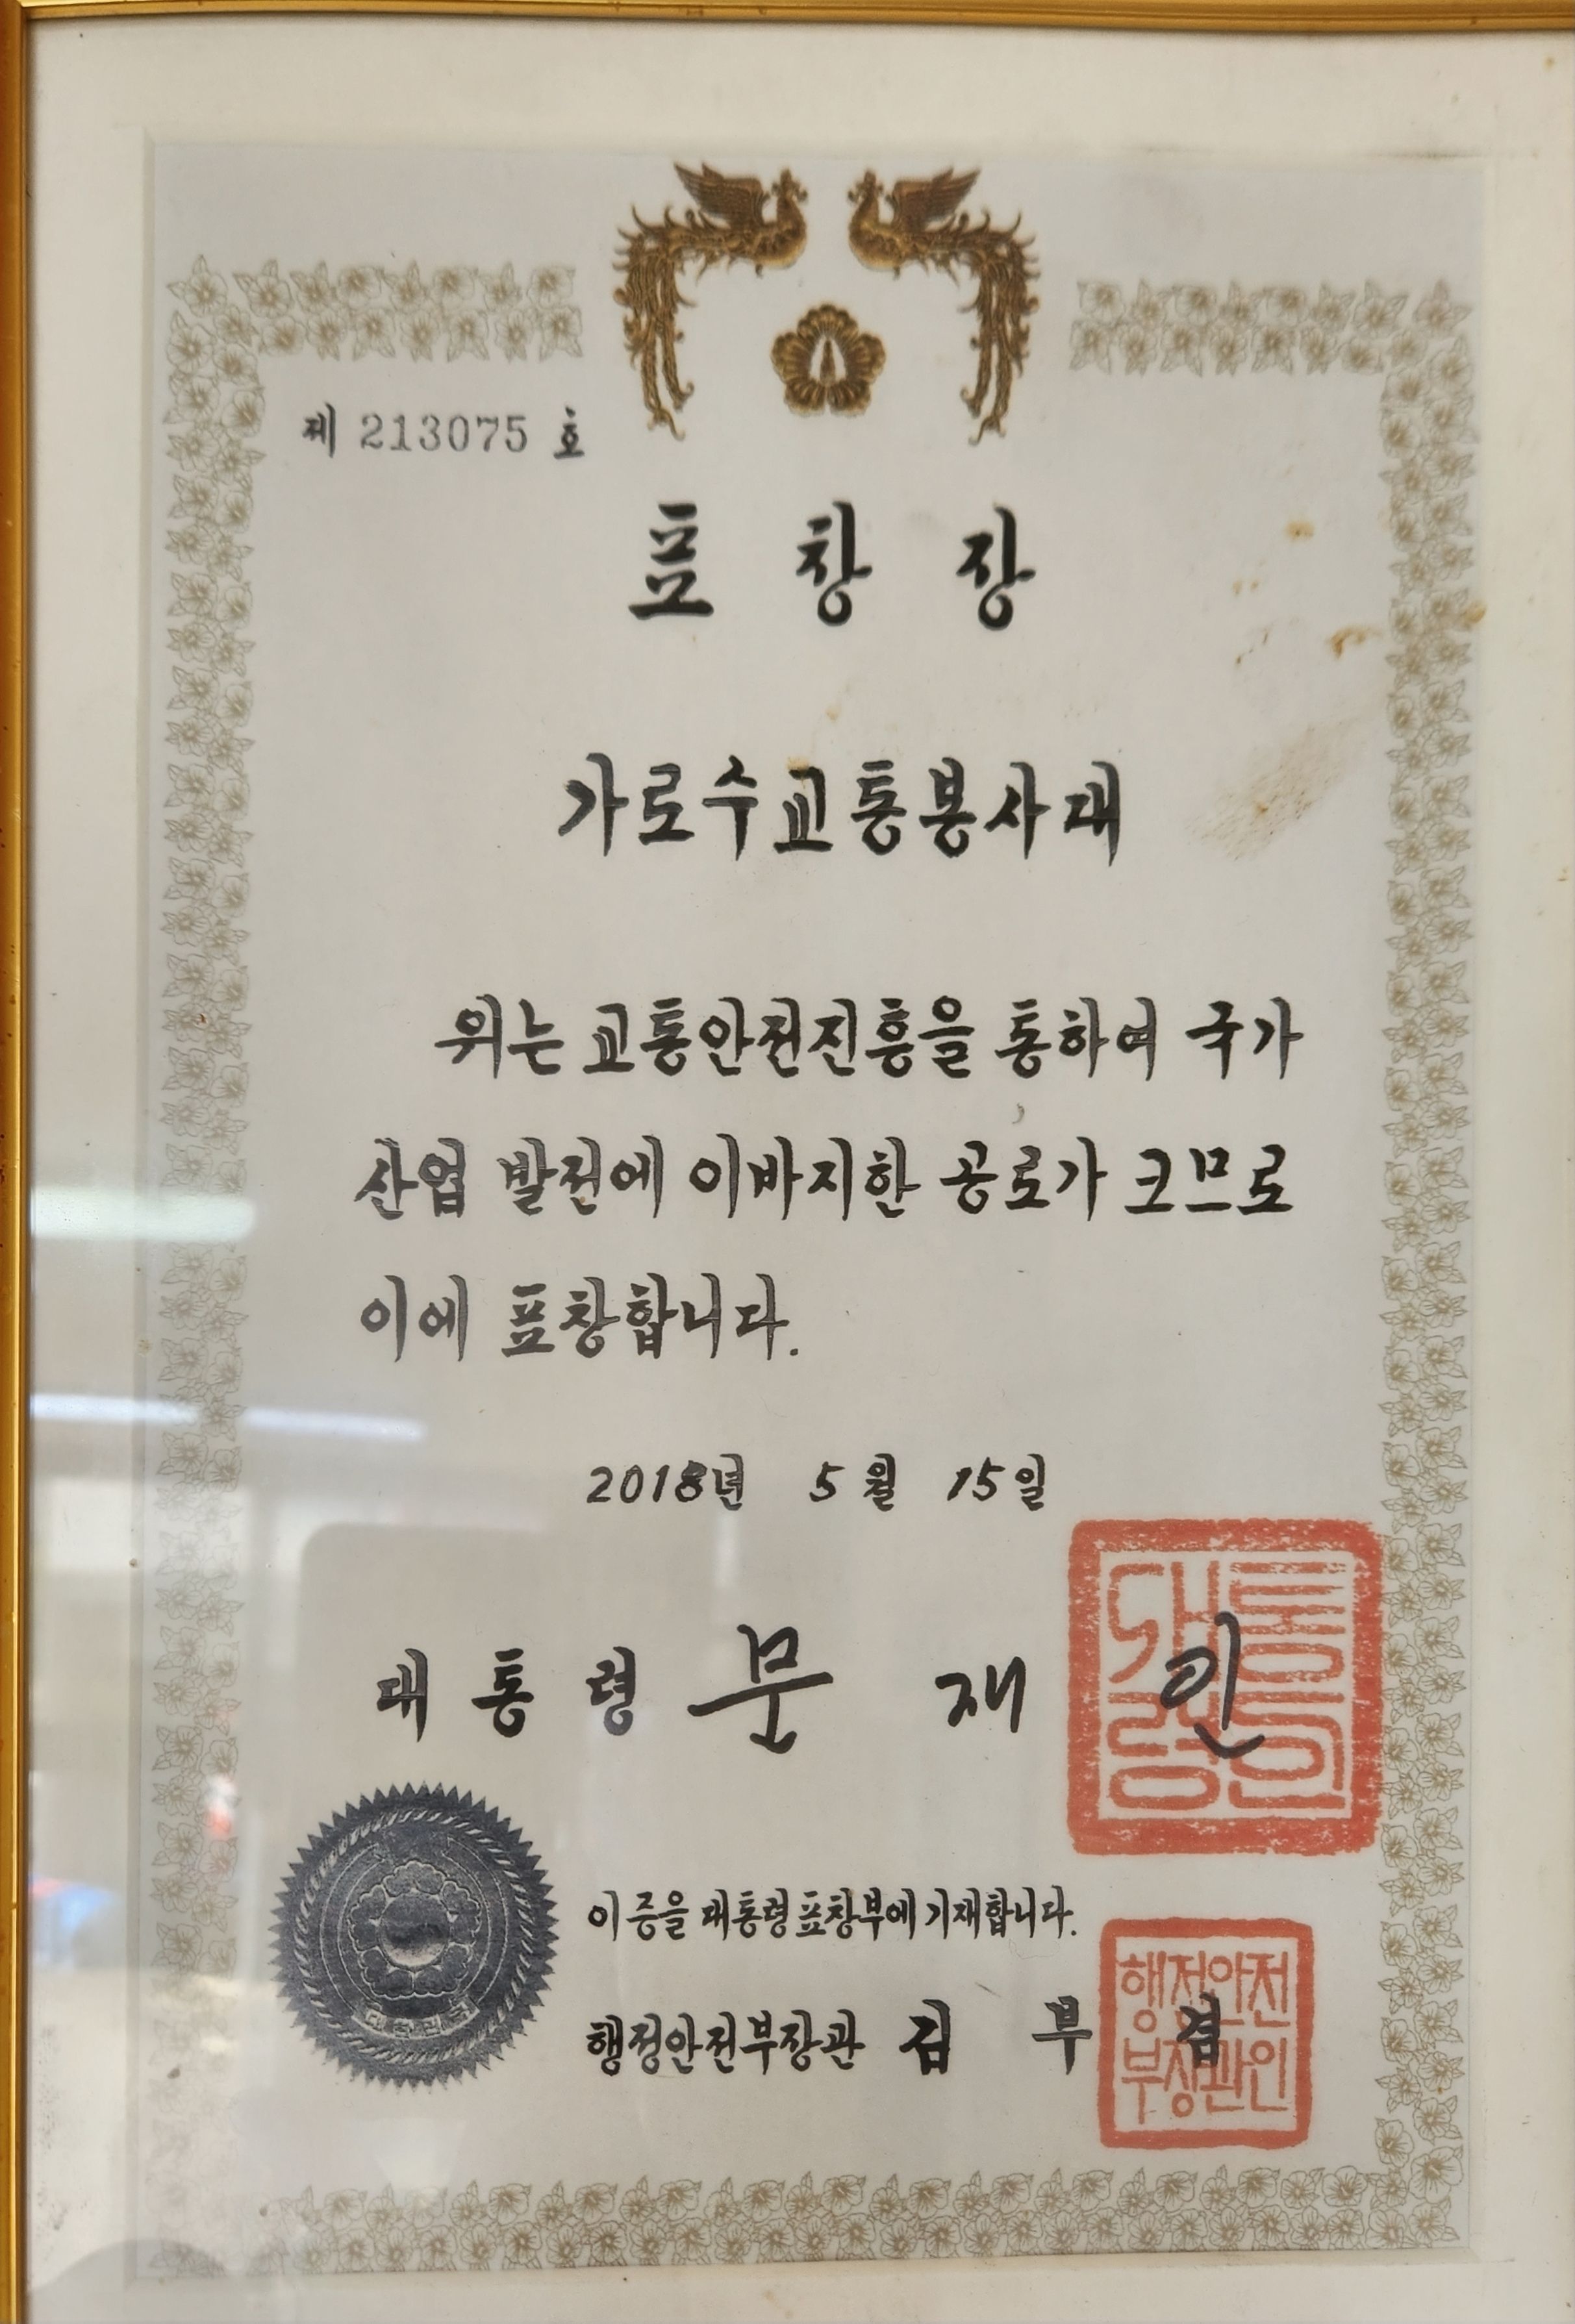 제 213075 호
표 창 장
가로수교통봉사대
위는 교통안전진흥을 통하여 국가
산업 발전에 이바지한 공로가 크므로
이에 표창합니다.
2018년 5월 15일
대 통 령 문 재 인
대통령의인
이 증을 대통령표창부에 기재합니다.
행정안전부장관 김 부 겸
행정안전
부장관인